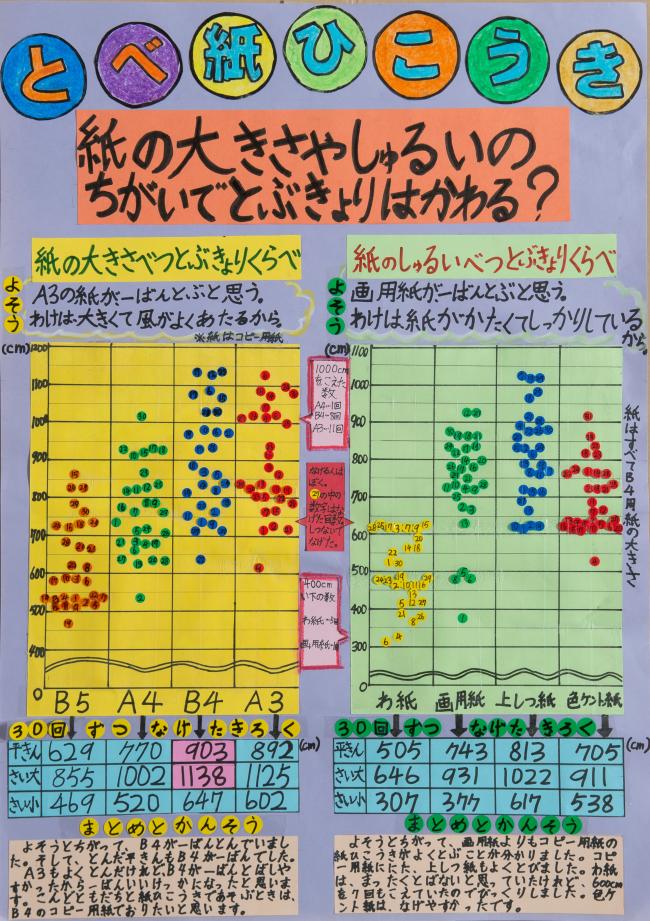 とべ紙ひこうき
紙の大きさやしゅるいの
ちがいでとぶきょりはかわる？
紙の大きさべつとぶきょりくらべ
よそう
A3の紙が一ばんとぶと思う。
わけは大きくて風がよくあたるから
※紙はコピー用紙
(cm)
1200
1100
1000
900
800
700
600
500
400
0
B5 A4 B4 A3
1000cm
をこえた
数
A4-1回
B4-8回
A3-11回
なげる人は
ぼく。
の中の
数字は
なげた回数
400cm
い下の数
紙のしゅるいべつとぶきょりくらべ
よそう
画用紙が一ばんとぶと思う。
わけは紙がかたくてしっかりしているから。
(cm)
1100
1000
900
800
700
600
500
400
300
0
わ紙 画用紙 上しつ紙 色ケント紙
紙はすべてB4用紙の大きさ
30回ずつなげたきろく
(cm)
平きん 629 770 903 892
さい大 855 1002 1138 1125
さい小 469 520 647 602
まとめとかんそう
よそうとちがって、B4が一ばんとんでいまし
た。そして、とんだ平きんもB4が一ばんでした。
A3もよくとんだけれど、B4が一ばんとばしや
すかったから一ばんいいけっかになったと思いま
す。こんどともだちと紙ひこうきであそぶときは、
B4のコピー用紙でおりたいと思います。
30回ずつなげたきろく
(cm)
平きん 505 743 813 705
さい大 646 931 1022 911
さい小 307 377 617 538
まとめとかんそう
よそうとちがって、画用紙よりもコピー用紙の
紙ひこうきがよくとぶことが分かりました。コピ
ー用紙ににた、上しつ紙もよくとびました。わ紙
は、まったくとばないと思っていたけれど、600cm
を7回もこえていたのでびっくりしました。色ケ
ント紙は、なげやすかったです。